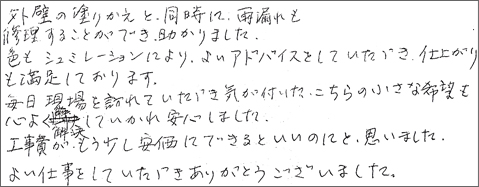 外壁の塗りかえと、同時に、雨漏れも
修理することができ、助かりました。
色もシュミレーションにより、よいアドバイスをしていただき、仕上がり
も満足しております。
毎日現場を訪れていただき気が付いた、こちらの小さな希望も
心よく解決していかれ安心しました。
工事費が、もう少し安価にできるといいのにと、思いました。
よい仕事をしていただきありがとうございました。